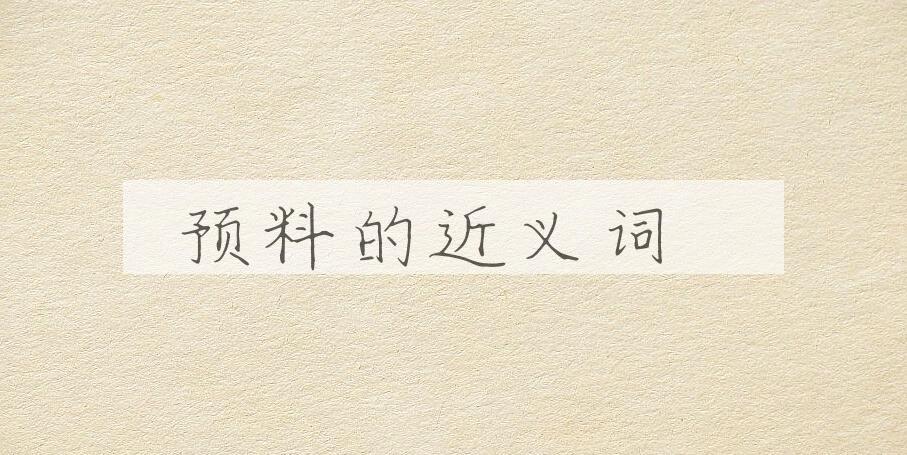 预料的近义词